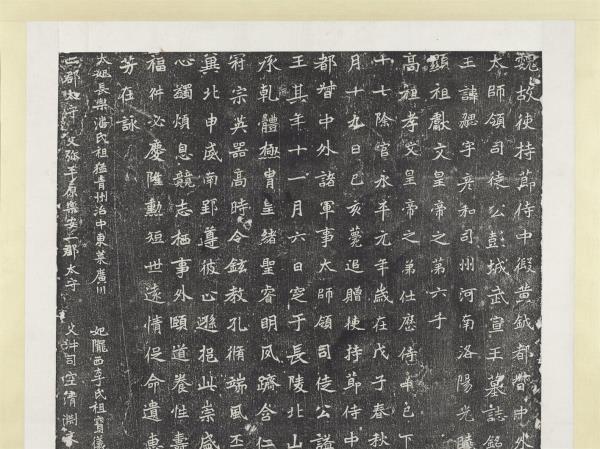 魏故使持節侍中假黃鉞都督中外
太師領司徒公彭城武宣王墓誌銘
王諱勰字彥和司州河南洛陽光睦
顯祖獻文皇帝之第六子
高祖孝文皇帝之弟仕歷侍中已下
十七除官永平元年歲在戊子春秋
月十九日己亥薨追贈使持節侍中
都督中外諸軍事太師領司徒公諡
王其年十一月六日窆于長陵北山
承乹體極胄皇緒聖睿明夙躋含仁
冠宗英器高時令鉉教孔脩端風丕
冀北申威南郢遵彼止遜挹此崇盛
心蠲煩息競志栖事外頤道養性壽
福舛必慶隆勳短世遠情促命遺惠
芳在詠
太妃長樂潘氏祖猛青州治中東萊廣川
二郡太守 父弥平原樂安二郡太守
妃隴西李氏祖寶儀
父沖司空清淵